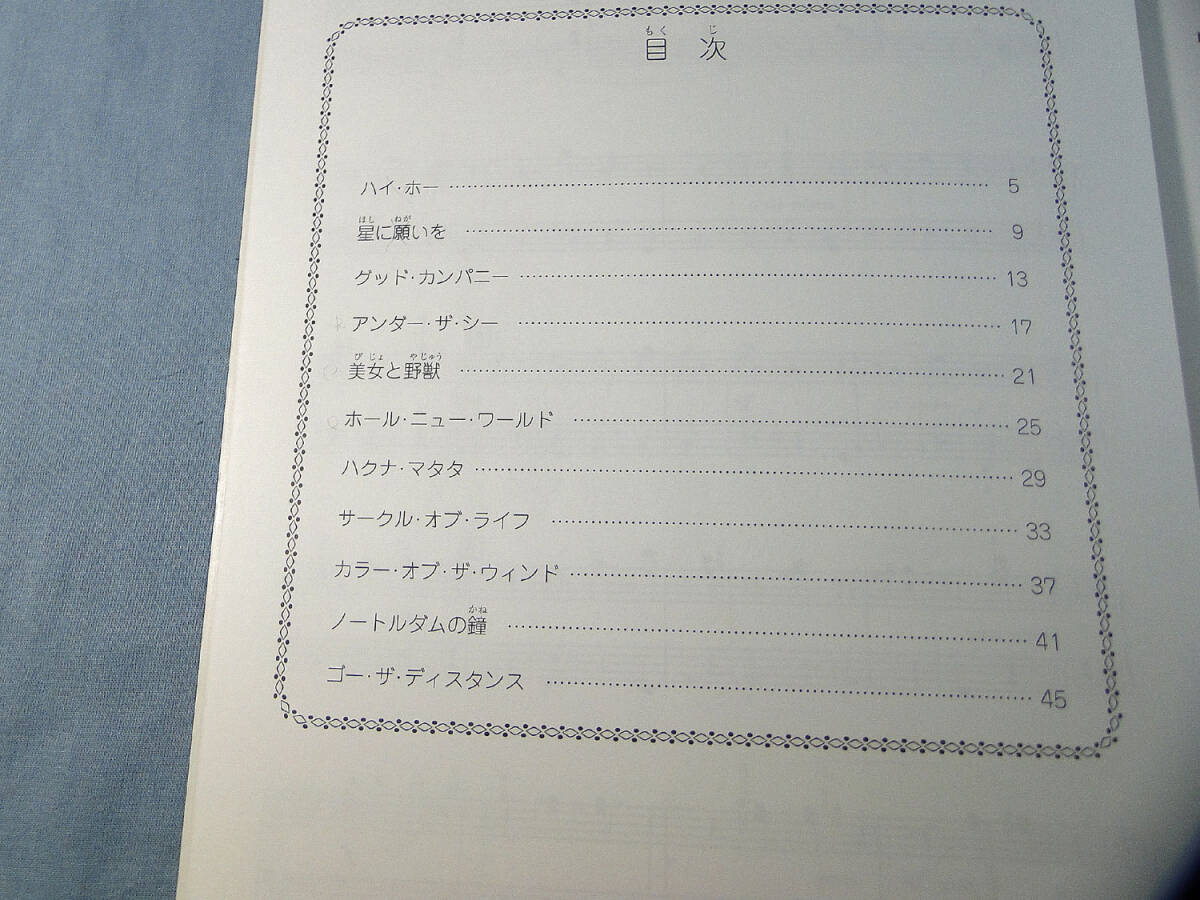 もく じ
目次
ハイ・ホー ………… 5
ほし ねが
星に願いを ………… 9
グッド・カンパニー ………… 13
アンダー・ザ・シー ………… 17
びじょ やじゅう
美女と野獣 ………… 21
ホール・ニュー・ワールド ………… 25
ハクナ・マタタ ………… 29
サークル・オブ・ライフ ………… 33
カラー・オブ・ザ・ウィンド ………… 37
かね
ノートルダムの鐘 ………… 41
ゴー・ザ・ディスタンス ………… 45